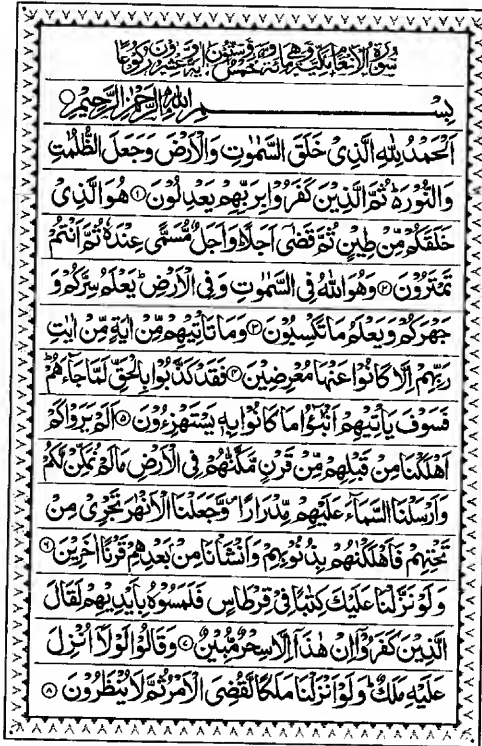 سورة الانعام مكية وهى مائة وخمس وستون اية وعشرون ركوعا
بِسْمِ اللهِ الرَّحْمٰنِ الرَّحِيْمِ
اَلْحَمْدُ لِلّٰهِ الَّذِىْ خَلَقَ السَّمٰوٰتِ وَالْاَرْضَ وَجَعَلَ الظُّلُمٰتِ
وَالنُّوْرَ ؕ ثُمَّ الَّذِيْنَ كَفَرُوْا بِرَبِّهِمْ يَعْدِلُوْنَ ۝۱ هُوَ الَّذِىْ
خَلَقَكُمْ مِّنْ طِيْنٍ ثُمَّ قَضٰۤى اَجَلًا ؕ وَاَجَلٌ مُّسَمًّى عِنْدَهٗ ثُمَّ اَنْتُمْ
تَمْتَرُوْنَ ۝۲ وَهُوَ اللهُ فِى السَّمٰوٰتِ وَفِى الْاَرْضِ ؕ يَعْلَمُ سِرَّكُمْ وَ
جَهْرَكُمْ وَيَعْلَمُ مَا تَكْسِبُوْنَ ۝۳ وَمَا تَاْتِيْهِمْ مِّنْ اٰيَةٍ مِّنْ اٰيٰتِ
رَبِّهِمْ اِلَّا كَانُوْا عَنْهَا مُعْرِضِيْنَ ۝۴ فَقَدْ كَذَّبُوْا بِالْحَقِّ لَمَّا جَآءَهُمْ ؕ
فَسَوْفَ يَاْتِيْهِمْ اَنْۢبٰٓؤُا مَا كَانُوْا بِهٖ يَسْتَهْزِءُوْنَ ۝۵ اَلَمْ يَرَوْا كَمْ
اَهْلَكْنَا مِنْ قَبْلِهِمْ مِّنْ قَرْنٍ مَّكَّنّٰهُمْ فِى الْاَرْضِ مَا لَمْ نُمَكِّنْ لَّكُمْ
وَاَرْسَلْنَا السَّمَآءَ عَلَيْهِمْ مِّدْرَارًا وَّجَعَلْنَا الْاَنْهٰرَ تَجْرِىْ مِنْ
تَحْتِهِمْ فَاَهْلَكْنٰهُمْ بِذُنُوْبِهِمْ وَاَنْشَاْنَا مِنْۢ بَعْدِهِمْ قَرْنًا اٰخَرِيْنَ ۝۶
وَلَوْ نَزَّلْنَا عَلَيْكَ كِتٰبًا فِىْ قِرْطَاسٍ فَلَمَسُوْهُ بِاَيْدِيْهِمْ لَقَالَ
الَّذِيْنَ كَفَرُوْۤا اِنْ هٰذَاۤ اِلَّا سِحْرٌ مُّبِيْنٌ ۝۷ وَقَالُوْا لَوْلَاۤ اُنْزِلَ
عَلَيْهِ مَلَكٌ ؕ وَلَوْ اَنْزَلْنَا مَلَكًا لَّقُضِىَ الْاَمْرُ ثُمَّ لَا يُنْظَرُوْنَ ۝۸